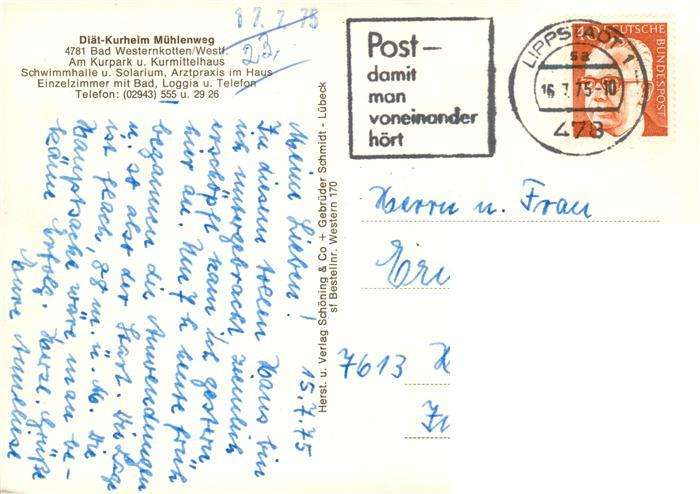 17.7.75
23,
Diät-Kurheim Mühlenweg
4781 Bad Westernkotten/Westf.
Am Kurpark u. Kurmittelhaus
Schwimmhalle u. Solarium, Arztpraxis im Haus
Einzelzimmer mit Bad, Loggia u. Telefon
Telefon: (02943) 555 u. 29 26
Post–
damit
man
voneinander
hört
LIPPSTADT 1
sa
16.7.75-10
478
DEUTSCHE BUNDESPOST
15.7.75
Meine Lieben!
In diesem tollen Haus bin
ich untergebracht, ziemlich
erschöpft kam ich gestern
hier an. Um 7 h heute früh
begannen die Anwendungen
u. so aber der Start. Die Lage
ist flach, 88 m. ü. M. Die
Hauptsache wäre man be-
käme Erfolg. Herzl. Grüße
Eure Anneliese
Herst. u. Verlag Schöning & Co + Gebrüder Schmidt - Lübeck
sf Bestellnr. Western 170
Herrn u. Frau
Eri
7613 H